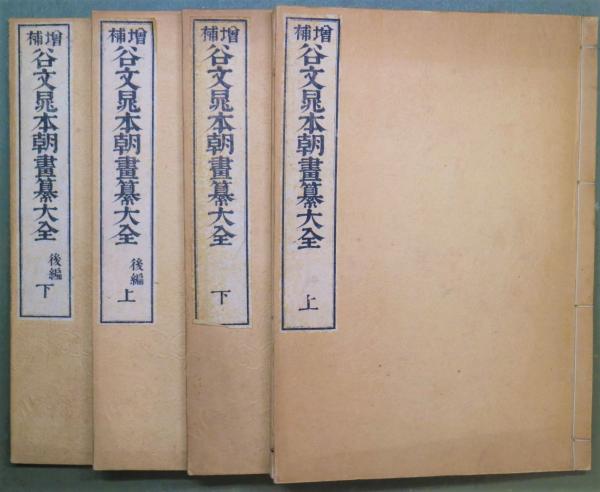 増補
谷文晁本朝畫纂大全
上
増補
谷文晁本朝畫纂大全
下
増補
谷文晁本朝畫纂大全
後編
上
増補
谷文晁本朝畫纂大全
後編
下